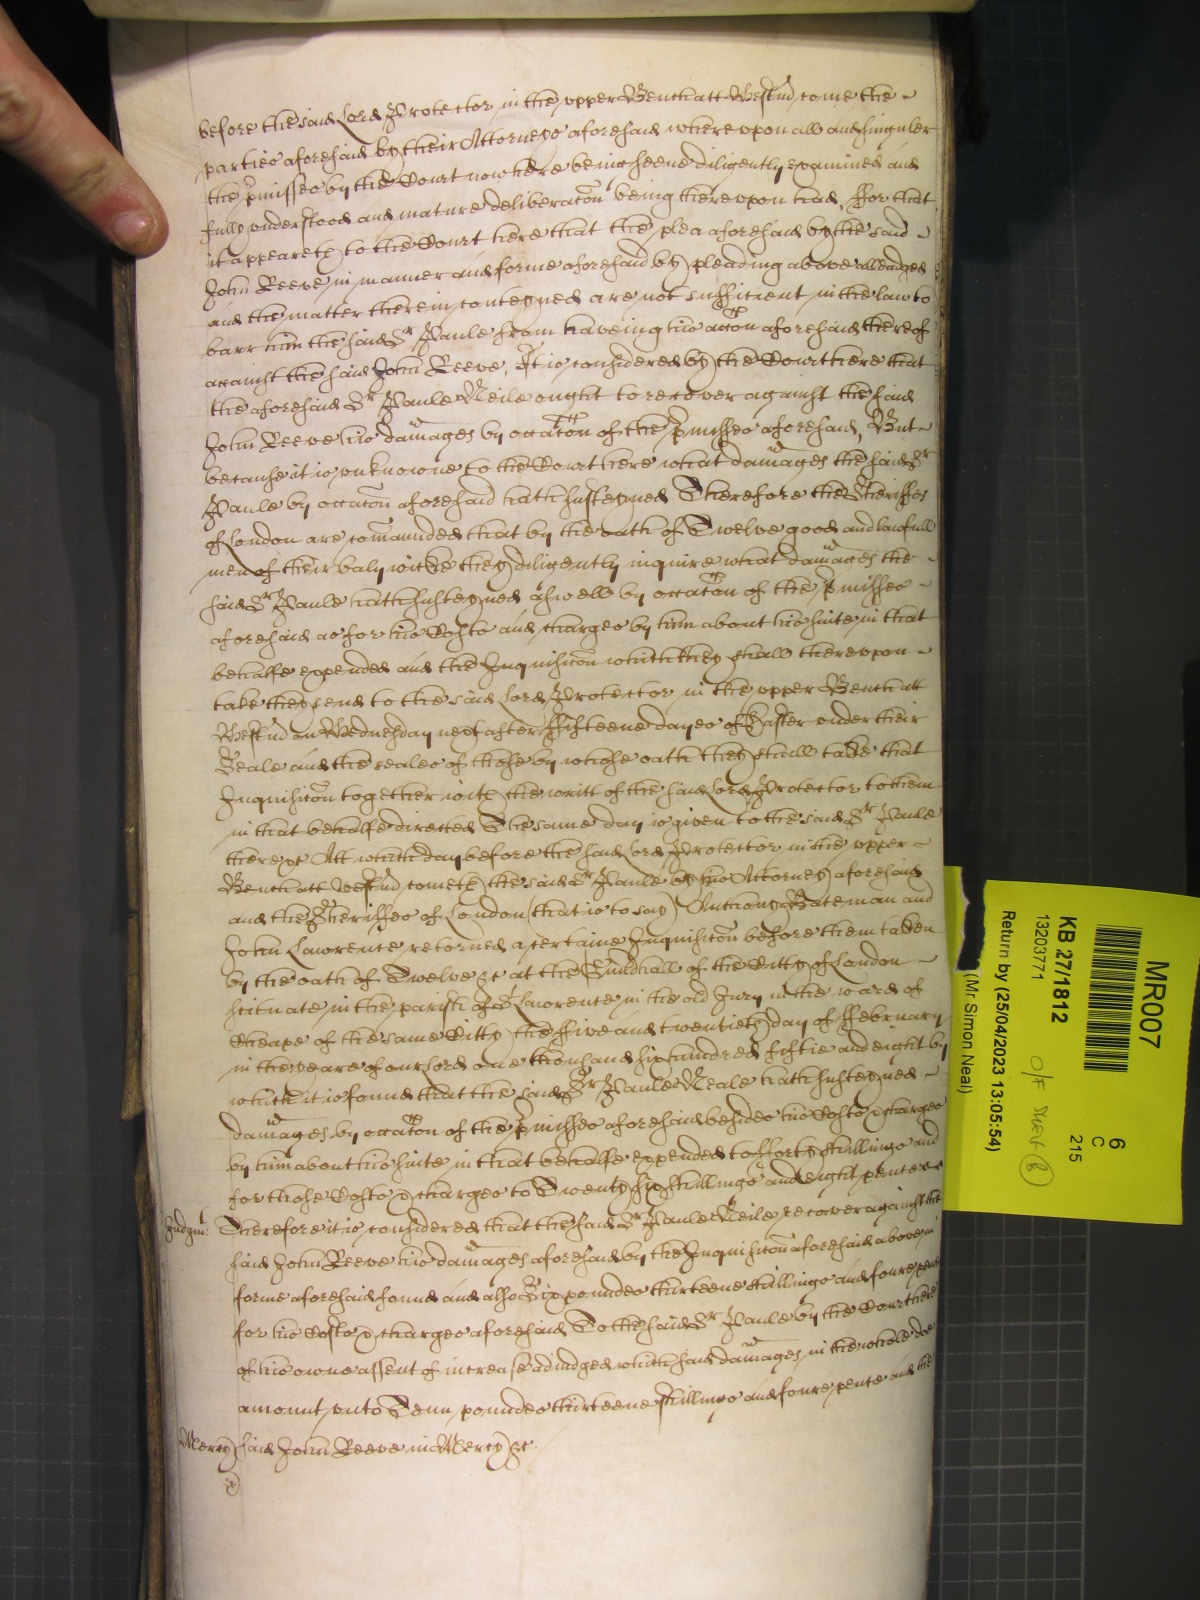 before the said Lord Protector in the upper Bench att Westm̃ come the
parties aforesaid by their Attorneys aforesaid whereupon all and singuler
the p̃misses by the Court now here being seene diligently examined and
fully understood and mature deliberacõn being thereupon had, ffor that
it appeareth to the Court here that the plea aforesaid by the said
John Reeve in manner and forme aforesaid by pleading above alleadged
and the matter therein conteyned are not sufficient in the law to
barr him the said Sr Paule from haveing his accõn aforesaid thereof
against the said John Reeve, It is considered by the Court here that
the aforesaid Sr Paule Neile ought to recover against the said
John Reeve his damages by occacõn of the p̃misses aforesaid, But
because it is unknowne to the Court here what damages the said Sr
Paule by occacõn aforesaid hath susteyned Therefore the Sheriffes
of London are com̃aunded that by the oath of Twelve good and lawfull
men of their balywicke they diligently inquire what damages the
said Sr Paule hath susteyned aswell by occacõn of the p̃misses
aforesaid as for his Costs and charges by him about his suite in that
behalfe expended and the Inquisicõn which they shall thereupon
take they send to the said Lord Protector in the upper Bench att
Westm̃ on Wednesday next after ffifteene dayes of Easter under their
Seale and the seales of those by whose oath they shall take that
Inquisicõn together with the writt of the said Lord Protector to them
in that behalfe directed The same day is given to the said Sr Paule
there &c Att which day before the said Lord Protector in the upper
Bench att Westm̃ cometh the said Sr Paule by his Attorney aforesaid
and the Sheriffes of London (that is to say) Anthony Bateman and
John Lawrence retorned a certaine Inquisicõn before them taken
by the oath of Twelve &c at the Guildhall of the Citty of London
scituate in the parish of St Lawrence in the old Jury in the ward of
Cheape of the same Citty the ffive and twentieth day of ffebruary
in the yeare of our Lord one thousand six hundred fiftie and eight by
which it is found that the said Sr Paule Neale hath susteyned
damages by occacõn of the p̃misses aforesaid besides his Costs & charges
by him about his suite in that behalfe expended to fforty shillings and
for those Costs & charges to Twenty six shillings and eight pence
Judgm̃: Therefore it is considered that the said Sr Paule Neile recover against the
said John Reeve his damages aforesaid by the Inquisicõn aforesaid above in
forme aforesaid found and also Six poundes thirteene shillings and foure pence
for his Costs & charges aforesaid To the said Sr Paule by the Court here
of his owne assent of increase adiudged which said damages in the whole doe
amount unto Tenn poundes thirteene shillings and foure pence and the
Mercy said John Reeve in Mercy &c.
MR007
6
C
215
KB 27/1812
13203771
O/F
Return by (25/04/2023 13:05:54)
(Mr Simon Neal)